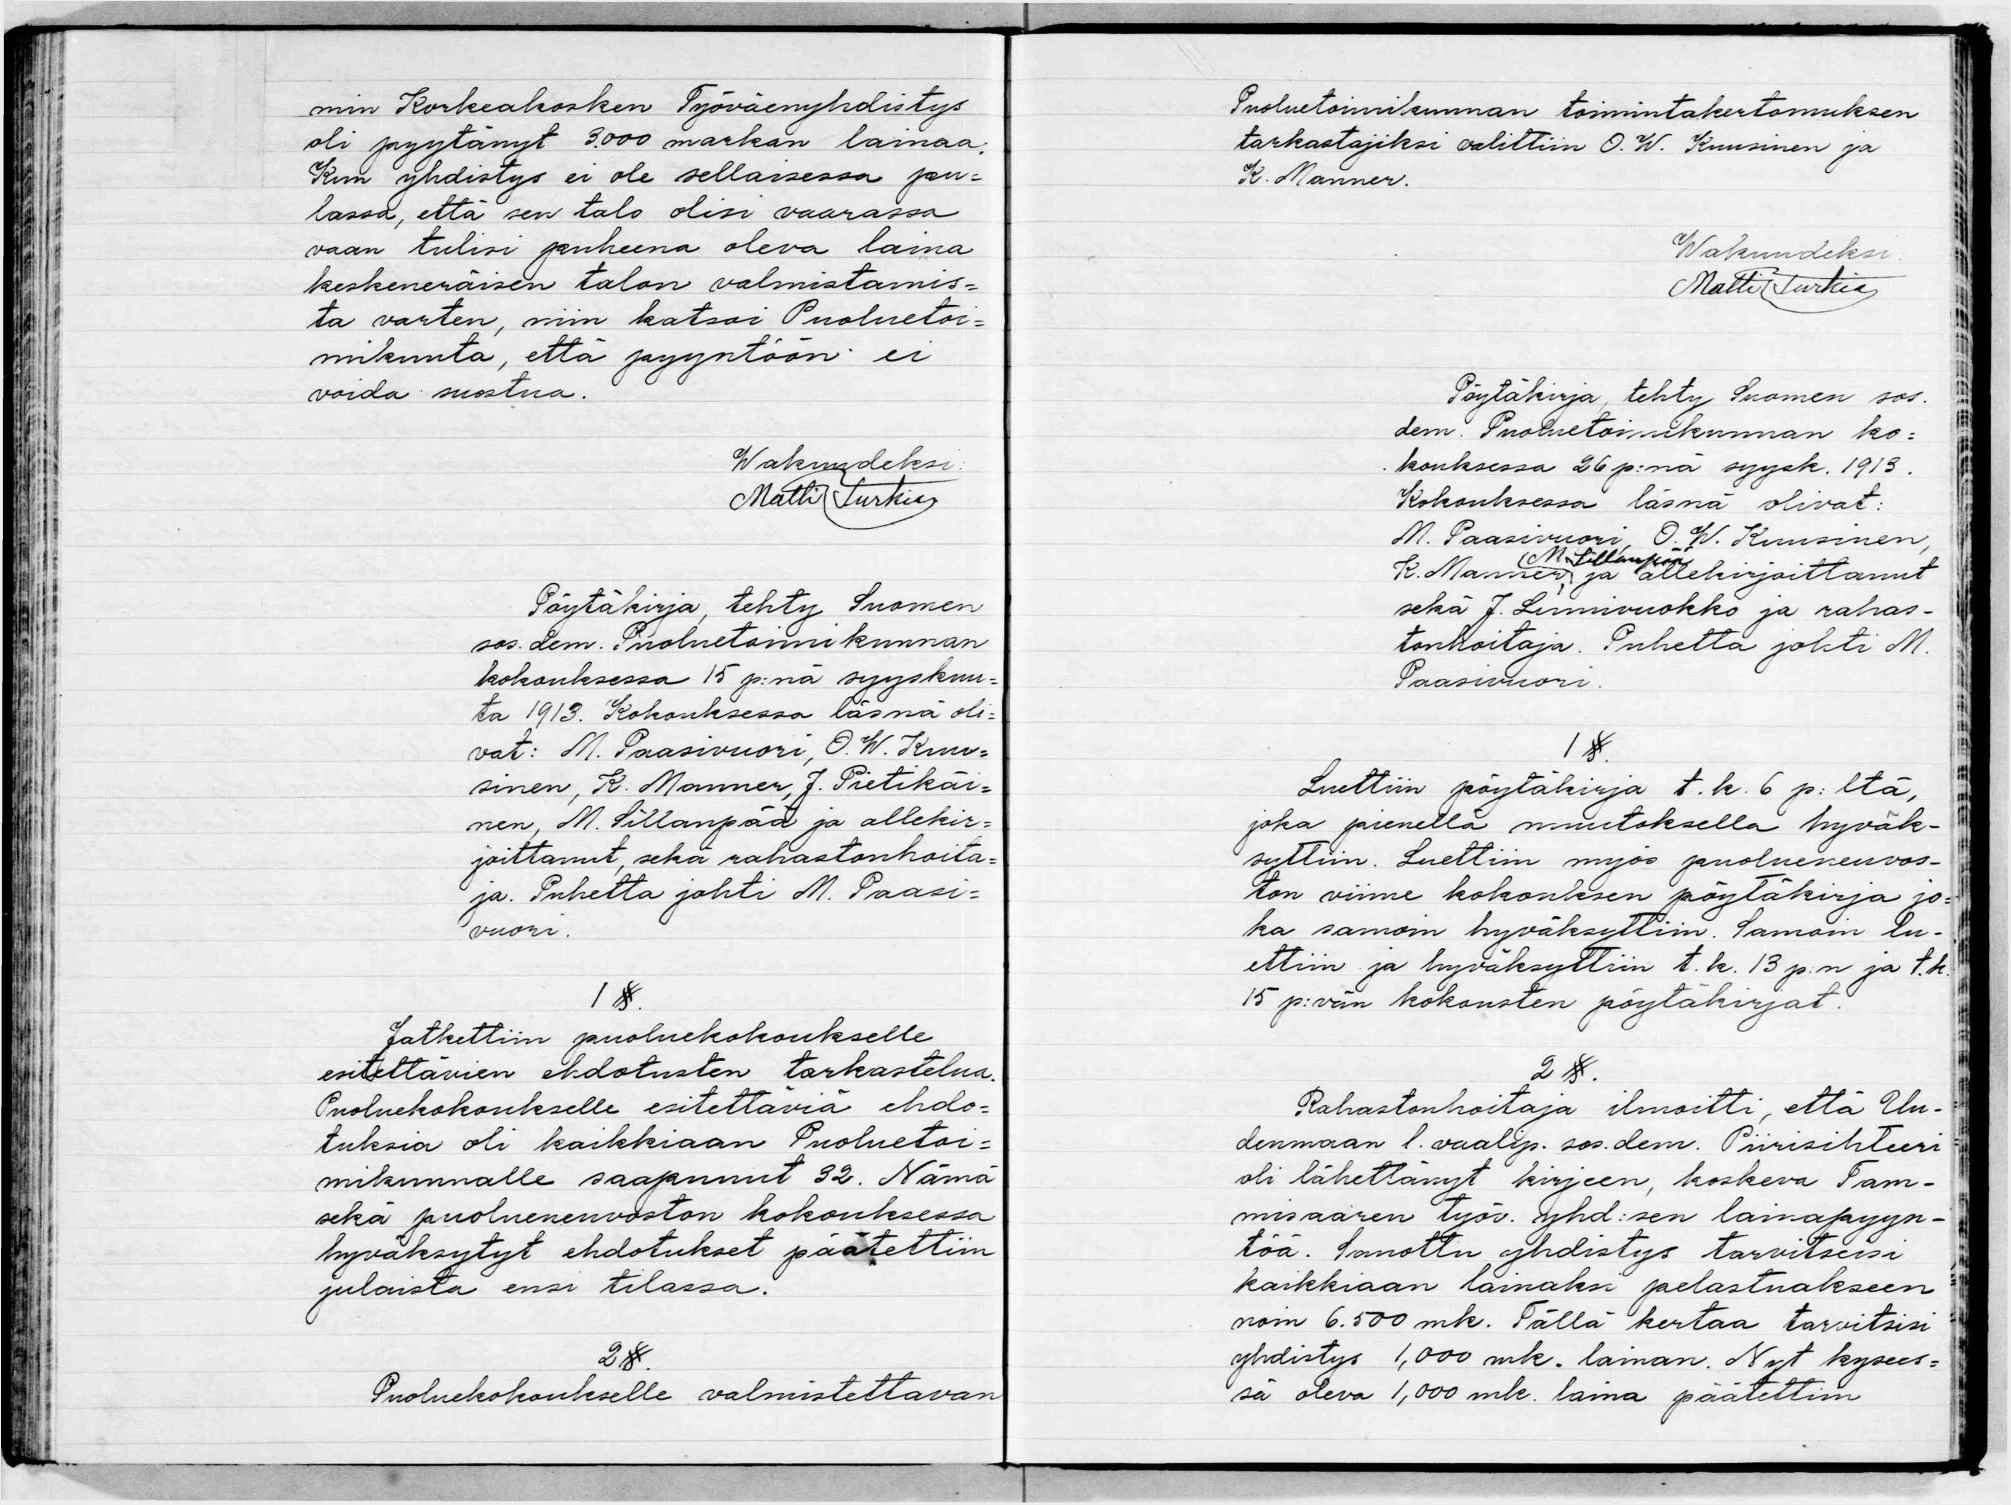 min Korkeakosken Työväenyhdistys
oli pyytänyt 3.000 markan lainaa.
Kun yhdistys ei ole sellaisessa pu=
lassa, että sen talo olisi vaarassa
vaan tulisi puheena oleva laina
keskeneräisen talon valmistamis=
ta varten, niin katsoi Puoluetoi=
mikunta, että pyyntöön ei
voida suostua.
Wakuudeksi:
Matti Turkia
Pöytäkirja, tehty Suomen
sos. dem. Puoluetoimikunnan
kokouksessa 15 p:nä syyskuu=
ta 1913. Kokouksessa läsnä oli=
vat: M. Paasivuori, O. W. Kuu=
sinen, K. Manner, J. Pietikäi=
nen, M. Sillanpää ja allekir=
joittanut, sekä rahastonhoita=
ja. Puhetta johti M. Paasi=
vuori.
1 §.
Jatkettiin puoluekokoukselle
esitettävien ehdotusten tarkastelua.
Puoluekokoukselle esitettäviä ehdo=
tuksia oli kaikkiaan Puoluetoi=
mikunnalle saapunut 32. Nämä
sekä puolueneuvoston kokouksessa
hyväksytyt ehdotukset päätettiin
julaista ensi tilassa.
2 §.
Puoluekokoukselle valmistettavan
Puoluetoimikunnan toimintakertomuksen
tarkastajiksi valittiin O. W. Kuusinen ja
K. Manner.
Wakuudeksi:
Matti Turkia
Pöytäkirja, tehty Suomen sos.
dem. Puoluetoimikunnan ko=
kouksessa 26 p:nä syysk. 1913.
Kokouksessa läsnä olivat:
M. Paasivuori, O. W. Kuusinen,
M. Sillanpää
K. Manner, ja allekirjoittanut
sekä J. Linnivuokko ja rahas-
tonhoitaja. Puhetta johti M.
Paasivuori.
1 §.
Luettiin pöytäkirja t. k. 6 p:ltä,
joka pienellä muutoksella hyväk-
syttiin. Luettiin myös puolueneuvos-
ton viime kokouksen pöytäkirja jo=
ka samoin hyväksyttiin. Samoin lu-
ettiin ja hyväksyttiin t. k. 13 p:n ja t. k.
15 p:vän kokousten pöytäkirjat.
2 §.
Rahastonhoitaja ilmoitti, että Uu-
denmaan l. vaalip. sos. dem. Piirisihteeri
oli lähettänyt kirjeen, koskeva Tam-
misaaren työv. yhd:sen lainapyyn-
töä. Sanottu yhdistys tarvitseisi
kaikkiaan lainaksi pelastuakseen
noin 6.500 mk. Tällä kertaa tarvitsisi
yhdistys 1,000 mk. lainan. Nyt kysees=
sä oleva 1,000 mk. laina päätettiin